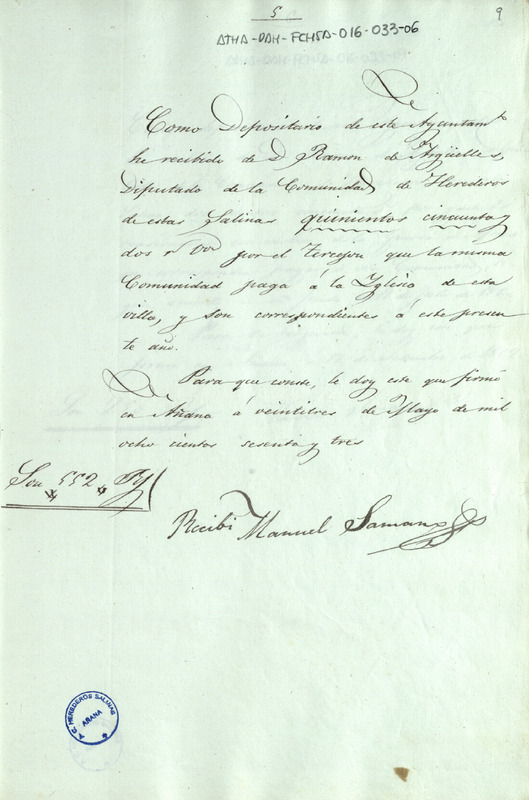 5
9
ATHA-DAH-FCHSA-016-033-06
Como Depositario de este Ayuntam.to
he recibido de D. Ramon de Argüelles,
Diputado de la Comunidad de Herederos
de estas Salinas quinientos cincuenta y
dos r.s von por el que la misma
Comunidad paga á la Yglesia de esta
villa, y son correspondientes á este presen
te año.
Para que conste, le doy este que firmo
en Añana á veintitres de Mayo de mil
ocho cientos sesenta y tres
Son 552
Recibi Manuel Samano
A.C. HEREDEROS SALINAS
AÑANA